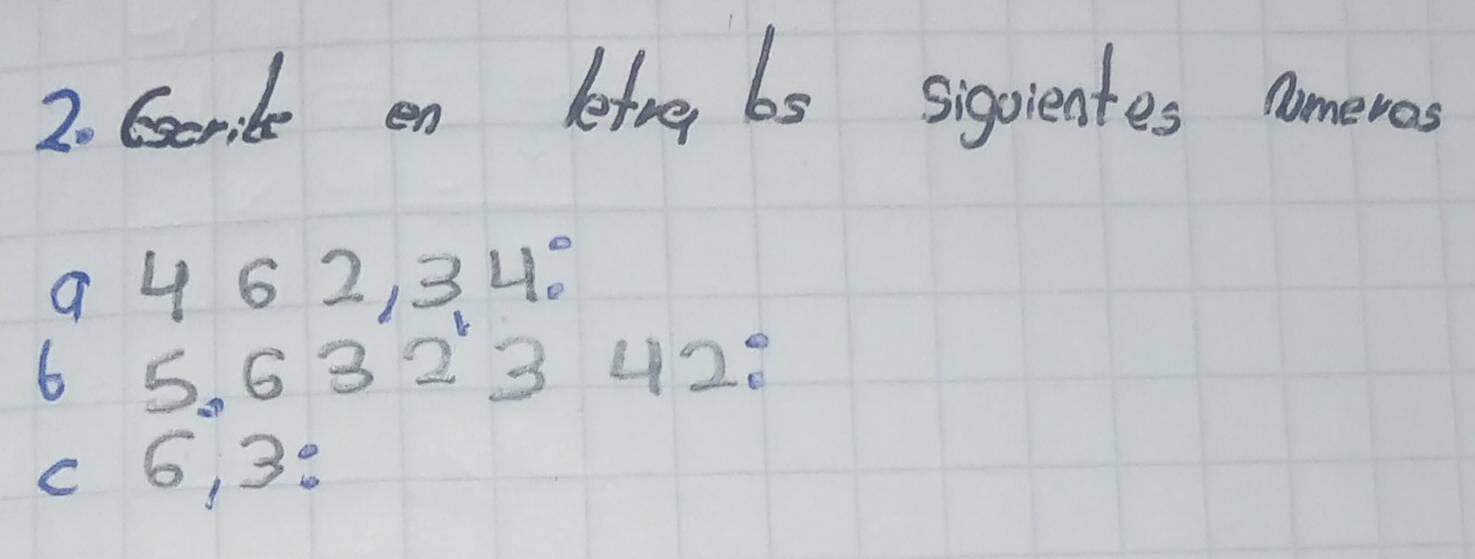 2. Escribe en letra los siguientes números
a 462,34:
b 5.632'342:
c 6,3: